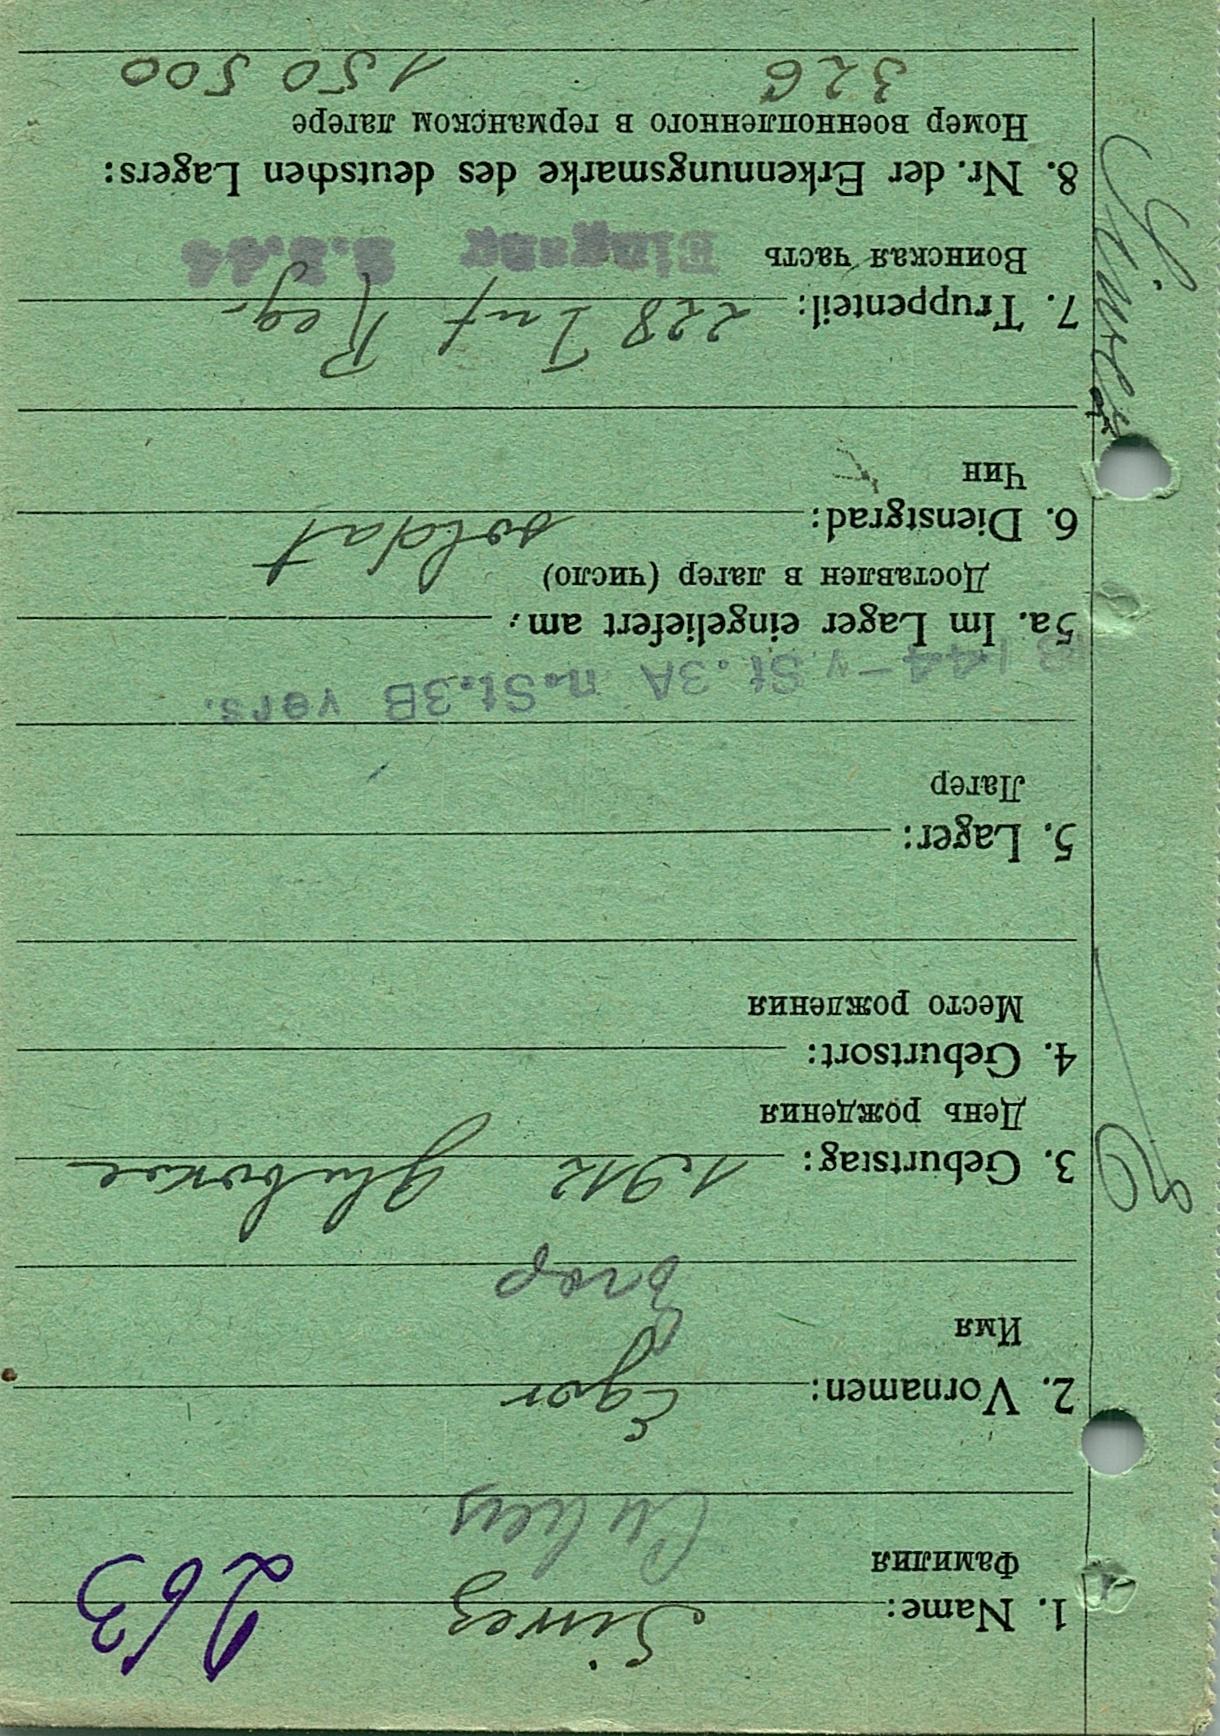 263
1. Name: Siwez
Фамилия
Сивец
2. Vornamen: Egor
Имя
Егор
3. Geburtstag: 1912 Glubokoe
День рождения
4. Geburtsort:
Место рождения
5. Lager:
Лагер
44-v.St.3A n.St.3B vers.
5a. Im Lager eingeliefert am:
Доставлен в лагер (число)
6. Dienstgrad: soldat
Чин
7. Truppenteil: 228 Inf Reg.
Воинская часть Eingang
8. Nr. der Erkennungsmarke des deutschen Lagers:
Номер военнопленного в германском лагере
326 150 500